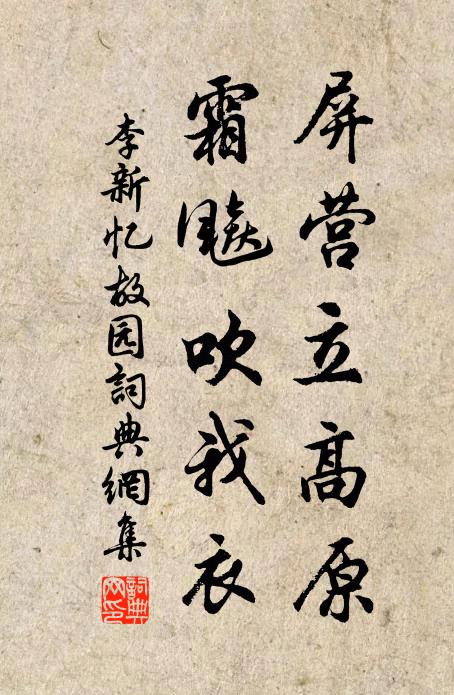 屏营立高原
霜飚吹我衣
李新忆故园詞典網集
詞典